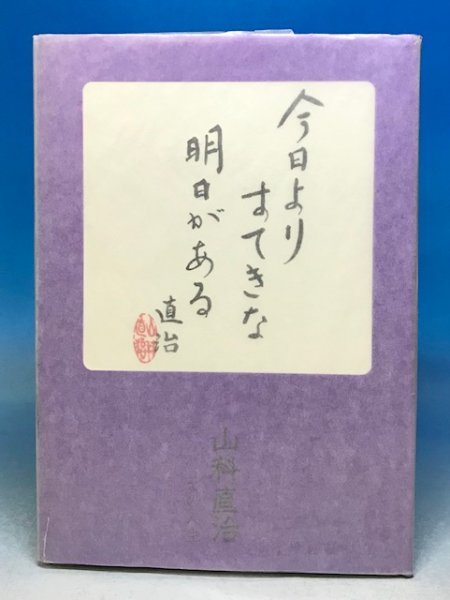 今日より
すてきな
明日がある
直治
山科直治